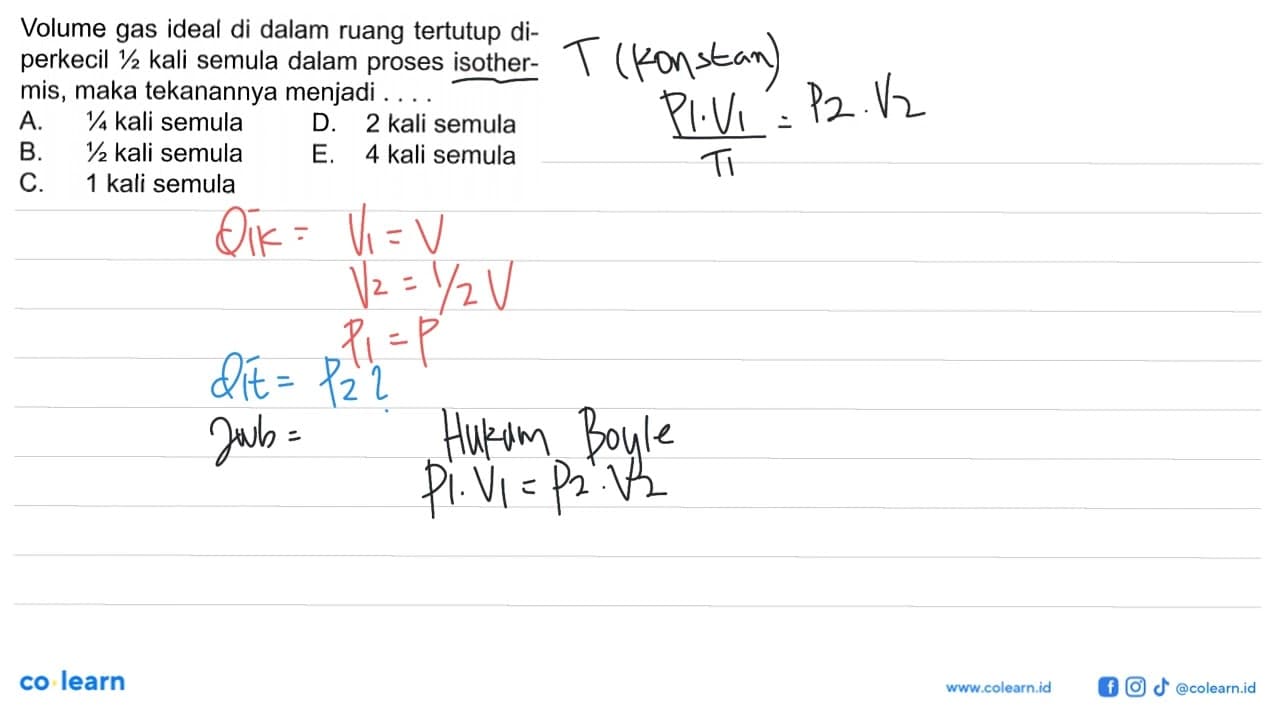 Volume gas ideal di dalam ruang tertutup di-
perkecil ½ kali semula dalam proses isother-
mis, maka tekanannya menjadi . . . .
A. ¼ kali semula D. 2 kali semula
B. ½ kali semula E. 4 kali semula
C. 1 kali semula
T (konstan)
P1.V1 = P2.V2
T1
Dik = V1 = V
V2 = 1/2 V
P1 = P
Dit = P2?
Jwb = Hukum Boyle
P1.V1 = P2.V2
co learn
www.colearn.id @colearn.id